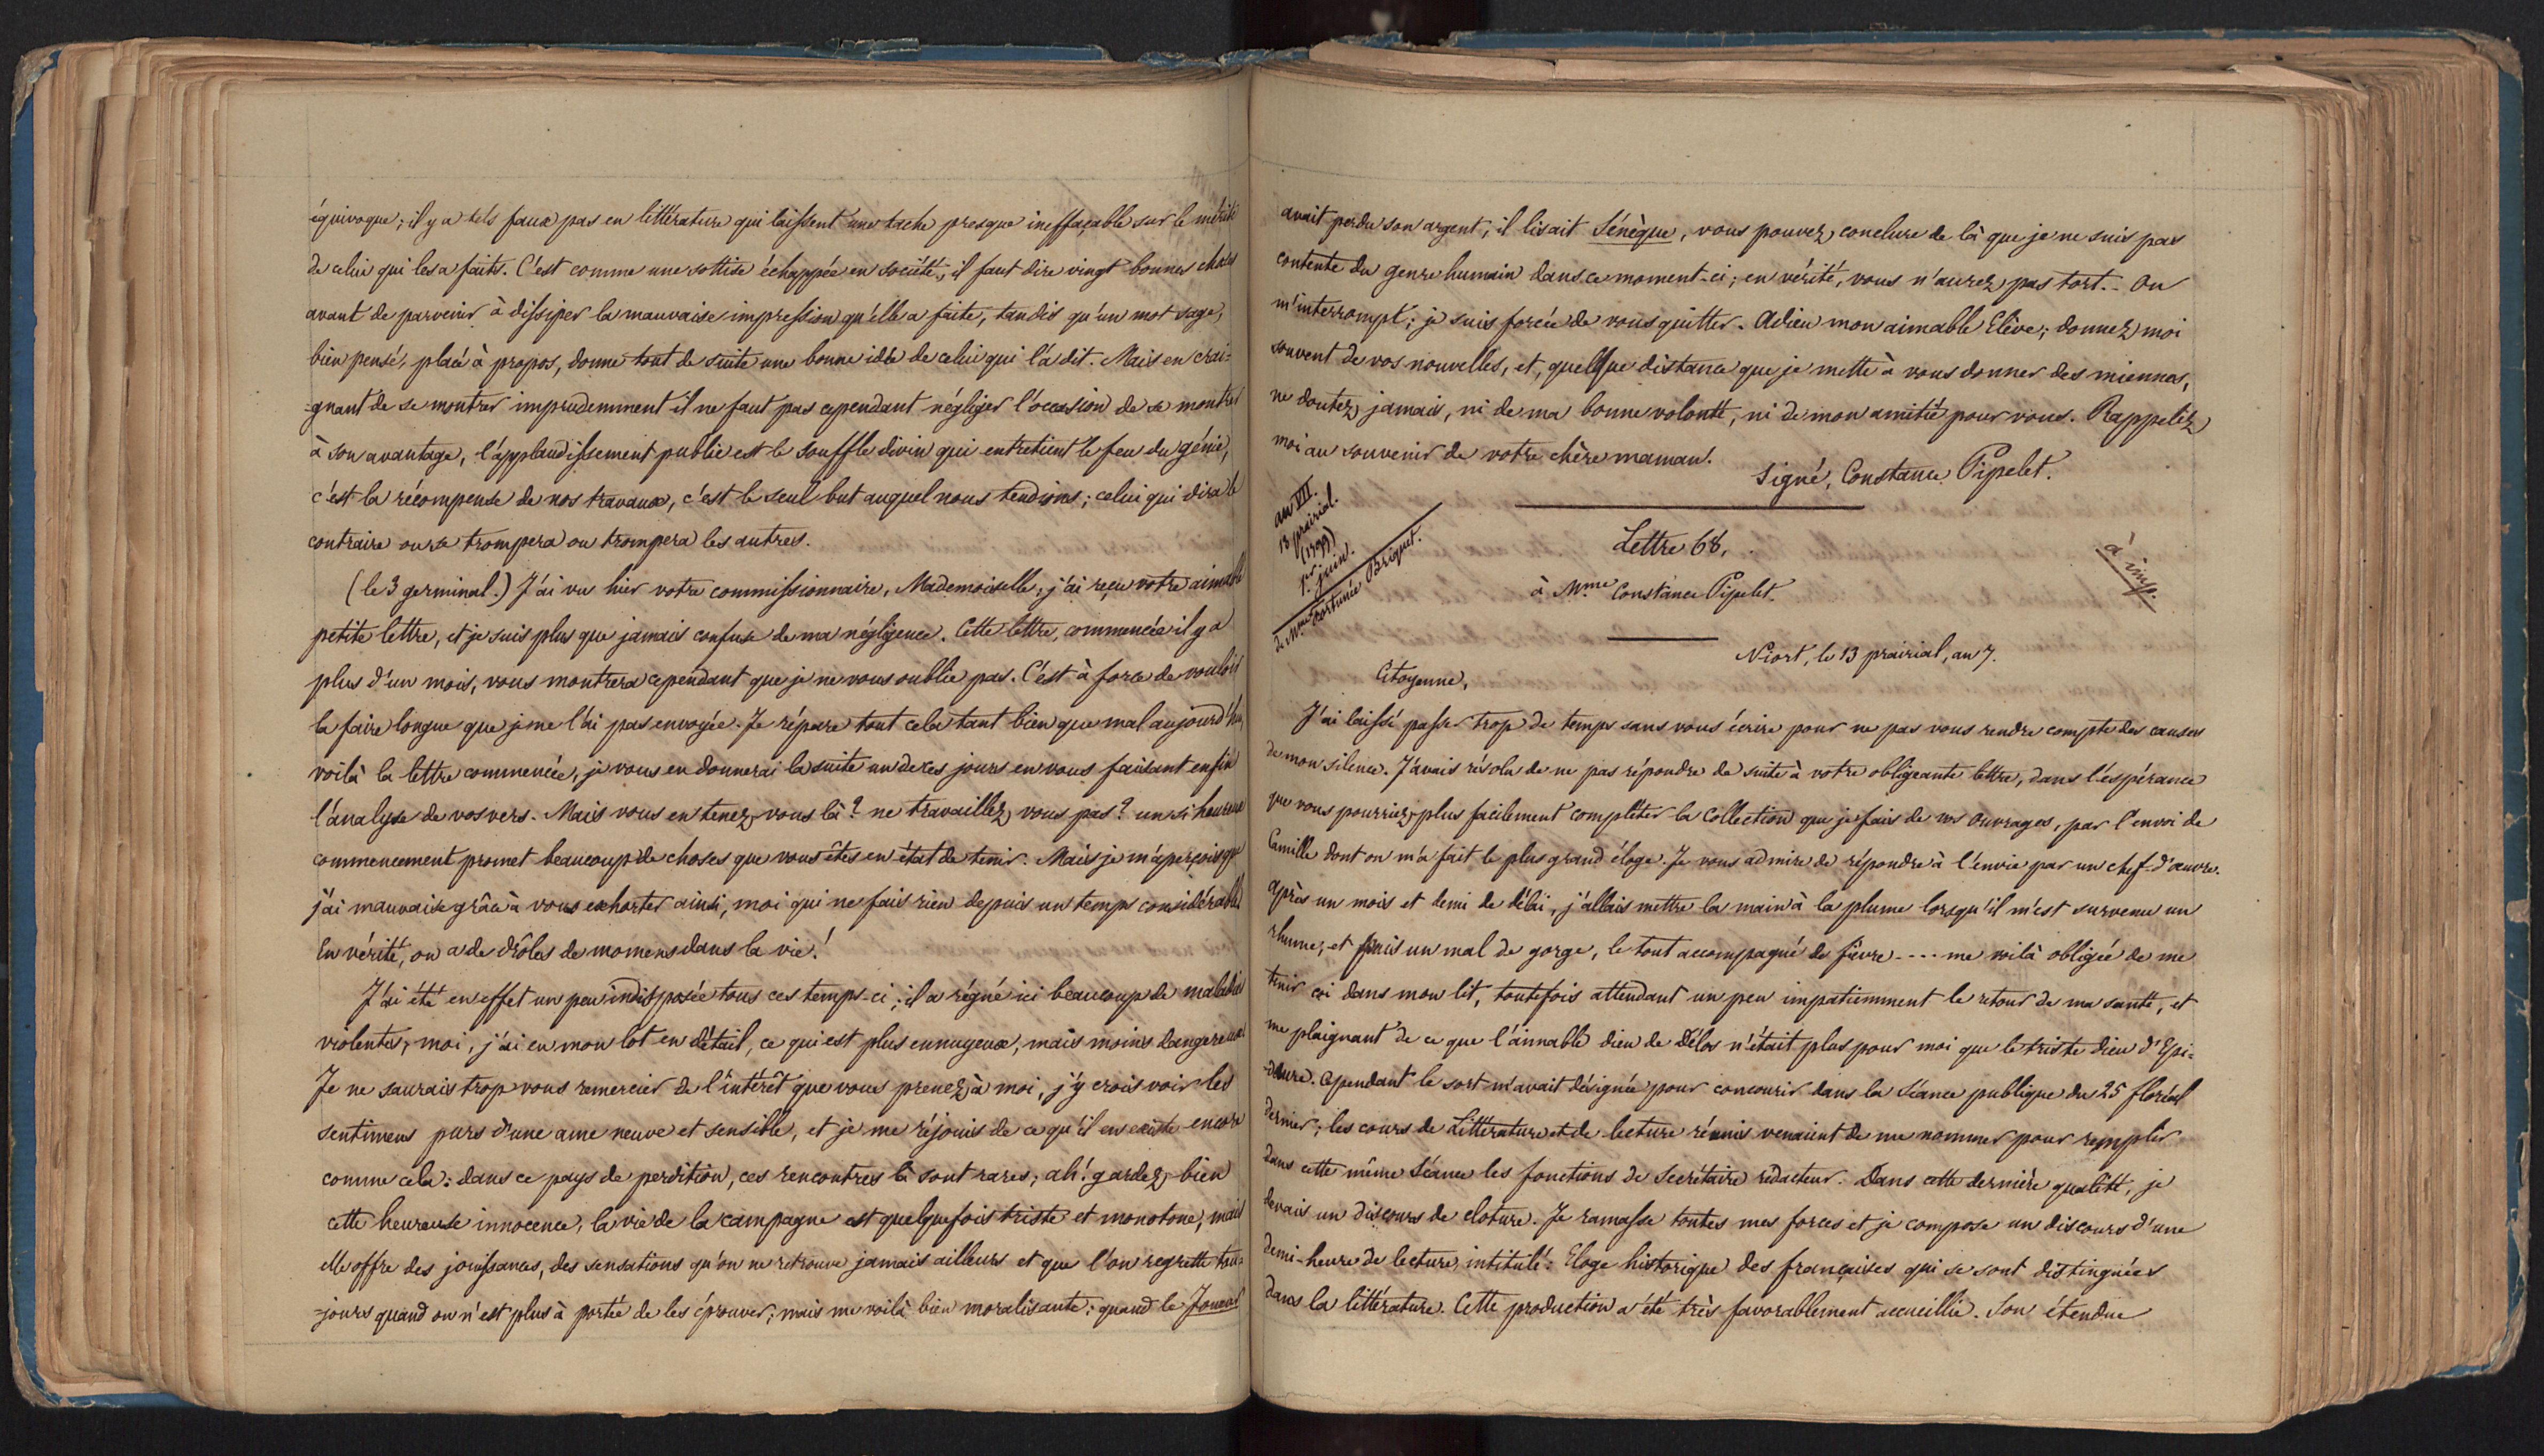 équivoque; il y a tels faux pas en littérature qui laissent une tache presque ineffaçable sur le mérite
de celui qui les a faits. C'est comme une sottise échappée en société; il faut dire vingt bonnes choses
avant de parvenir à dissiper la mauvaise impression qu'elle a faite, tandis qu'un mot sage,
bien pensé, placé à propos, donne tout de suite une bonne idée de celui qui l'a dit. Mais en crai=
=gnant de se montrer imprudemment il ne faut pas cependant négliger l'occasion de se montrer
à son avantage, l'applaudissement public est le souffle divin qui entretient le feu du génie,
c'est la récompense de nos travaux, c'est le seul but auquel nous tendions; celui qui dira le
contraire ou se trompera ou trompera les autres.
(le 3 germinal.) J'ai vu hier votre commissionnaire, Mademoiselle, j'ai reçu votre aimable
petite lettre, et je suis plus que jamais confuse de ma négligence. Cette lettre, commencée il y a
plus d'un mois, vous montrera cependant que je ne vous oublie pas. C'est à force de vouloir
la faire longue que je ne l'ai pas envoyée. Je répare tout cela tant bien que mal aujourd'hui,
voilà la lettre commencée, je vous en donnerai la suite un de ces jours en vous faisant enfin
l'analyse de vos vers. Mais vous en tenez-vous là? ne travaillez vous pas? un si heureux
commencement promet beaucoup de choses que vous êtes en état de tenir. Mais je m'aperçois que
j'ai mauvaise grâce à vous exhorter ainsi, moi qui ne fais rien depuis un temps considérable
En vérité, on a de drôles de momens dans la vie!
J'ai été en effet un peu indisposée tous ces temps-ci; il a régné ici beaucoup de maladies
violentes, moi, j'ai eu mon lot en détail, ce qui est plus ennuyeux, mais moins dangereux
Je ne saurais trop vous remercier de l'intérêt que vous prenez à moi, j'y crois voir les
sentimens purs d'une ame neuve et sensible, et je me réjouis de ce qu'il en existe encore
comme cela: dans ce pays de perdition, ces rencontres là sont rares; ah! gardez bien
cette heureuse innocence, la vie de la campagne est quelquefois triste et monotone, mais
elle offre des jouissances, des sensations qu'on ne retrouve jamais ailleurs et que l'on regrette tou=
=jours quand on n'est plus à portée de les éprouver; mais me voilà bien moralisante; quand le Joueur
avait perdu son argent, il lisait Sénèque, vous pouvez conclure de là que je ne suis pas
contente du genre humain dans ce moment-ci; en vérité, vous n'aurez pas tort... On
m'interrompt; je suis forcée de vous quitter. Adieu mon aimable Elève; donnez moi
souvent de vos nouvelles, et, quelque distance que je mette à vous donner des miennes,
ne doutez jamais, ni de ma bonne volonté, ni de mon amitié pour vous. Rappelez
moi au souvenir de votre chère maman.
Signé, Constance Pipelet.
an VII.
13 prairial.
(1799)
1er juin.
de Mme Fortunée Briquet.
Lettre 68,
à imp.
à Mme Constance Pipelet.
Niort, le 13 prairial, an 7.
Citoyenne,
J'ai laissé passer trop de temps sans vous écrire pour ne pas vous rendre compte des causes
de mon silence. J'avais résolu de ne pas répondre de suite à votre obligeante lettre, dans l'espérance
que vous pourriez plus facilement compléter la collection que je fais de vos ouvrages, par l'envoi de
Camille dont on m'a fait le plus grand éloge. Je vous admire de répondre à l'envie par un chef-d'œuvre.
Après un mois et demi de délai, j'allais mettre la main à la plume lorsqu'il m'est survenu un
rhume, et puis un mal de gorge, le tout accompagné de fièvre.... me voilà obligée de me
tenir coi dans mon lit, toutefois attendant un peu impatiemment le retour de ma santé, et
me plaignant de ce que l'aimable dieu de Délos n'était plus pour moi que le triste dieu d'Epi=
=daure. Cependant le sort m'avait désignée pour concourir dans la Séance publique du 25 floréal
dernier; les cours de Littérature et de lecture réunis venaient de me nommer pour remplir
dans cette même Séance les fonctions de Secrétaire rédacteur. Dans cette dernière qualité, je
devais un discours de cloture. Je ramasse toutes mes forces et je compose un discours d'une
demi-heure de lecture, intitulé: Eloge historique des françaises qui se sont distinguées
dans la littérature. Cette production a été très favorablement accueillie. Son étendue